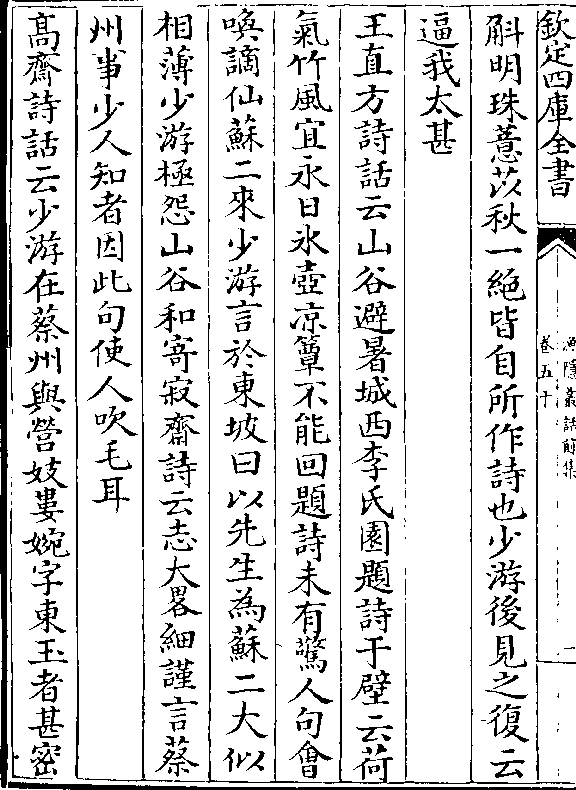 欽定四庫全書
漁隱叢話前集
卷五十
斛明珠薏苡秋一絶皆自所作詩也少游後見之復云
逼我太甚
王直方詩話云山谷避暑城西李氏園題詩于壁云荷
氣竹風宜永日氷壺凉簟不能回題詩未有驚人句㑹
喚謫仙蘇二來少游言於東坡曰以先生為蘇二大似
相薄少游極怨山谷和寄寂齋詩云志大畧細謹言蔡
州事少人知者因此句使人吹毛耳
髙齋詩話云少游在蔡州與營妓婁婉字東玉者甚宻